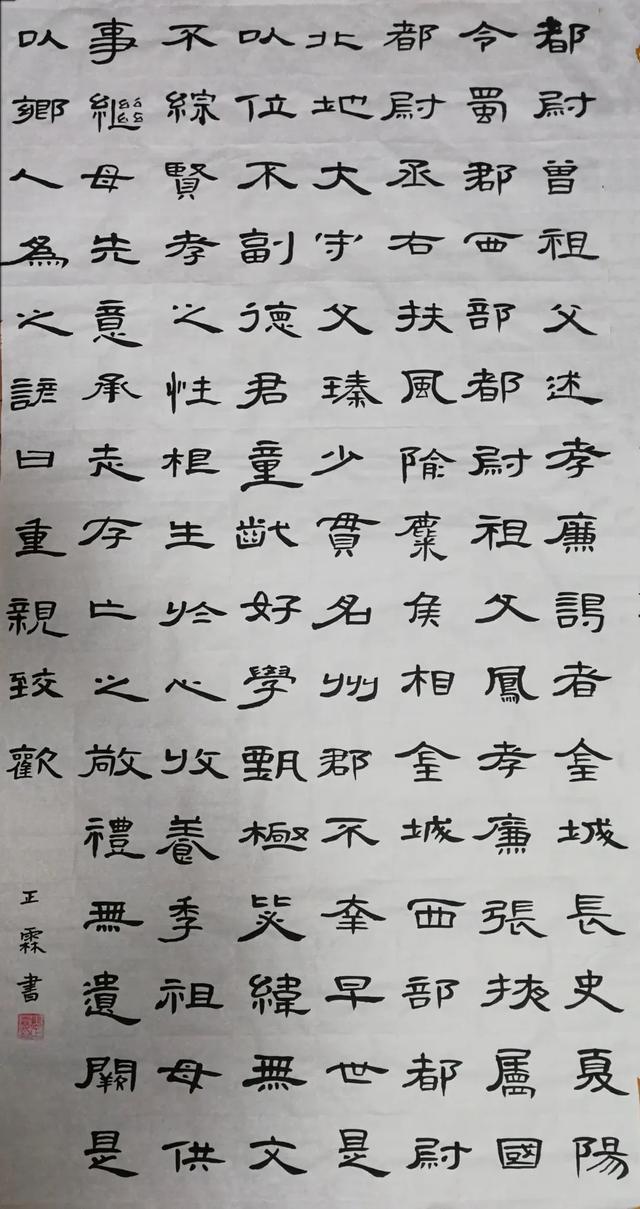 都尉曾祖父述孝廉謁者金城長史夏陽
令蜀郡西部都尉祖父鳳孝廉張掖屬國
都尉丞右扶風隃麋侯相金城西部都尉
北地大守父琫少貫名州郡不幸早世是
以位不副德君童齔好學甄極毖緯無文
不綜賢孝之性根生於心收養季祖母供
事繼母先意承志存亡之敬禮無遺闕是
以鄉人為之諺曰重親致歡
正霖書